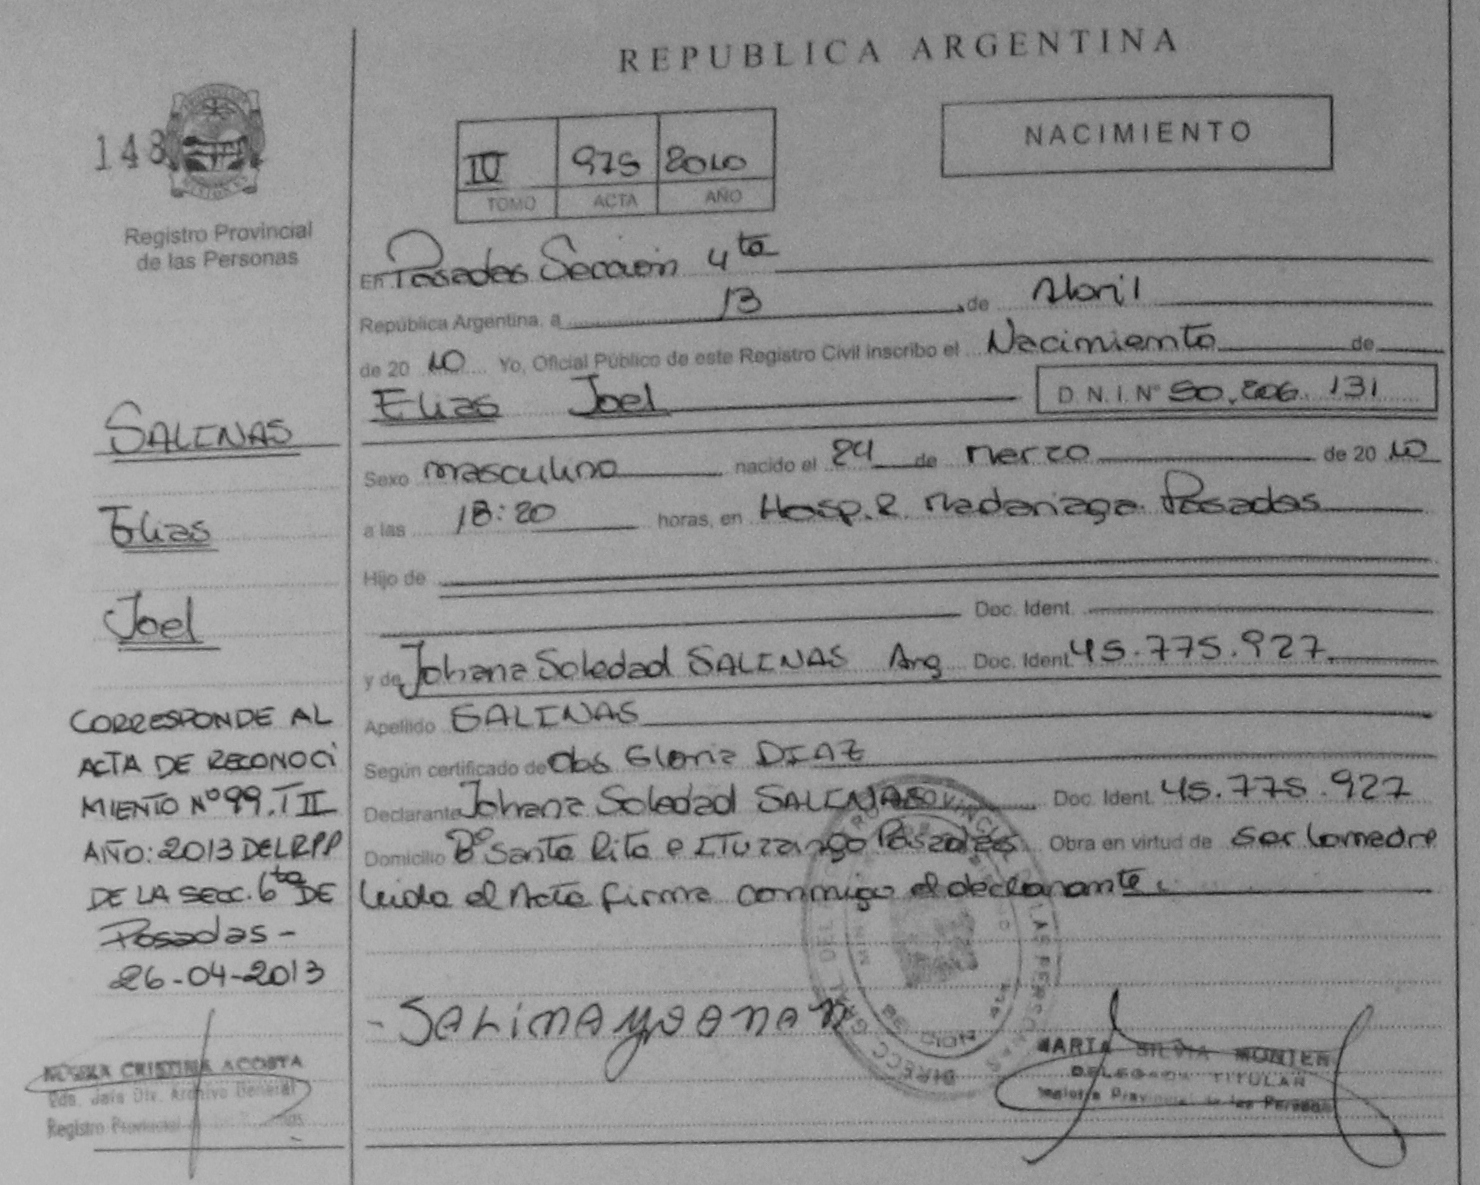 REPUBLICA ARGENTINA
148
NACIMIENTO
IV 975 2010
TOMO ACTA AÑO
Registro Provincial
de las Personas
En Posadas Sección 4ta
República Argentina, a 13 de Abril
de 2010 Yo, Oficial Público de este Registro Civil inscribo el Nacimiento de
Elias Joel D.N.I. Nº 50.206.131
SALINAS
Elias
Joel
Sexo masculino nacido el 24 de Marzo de 2010
a las 18:20 horas, en Hosp. R. Madariaga Posadas
Hijo de
Doc. Ident.
y de Johana Soledad SALINAS Arg Doc. Ident. 45.775.927
Apellido SALINAS
Según certificado de Obs Gloria DIAZ
Declarante Johana Soledad SALINAS Doc. Ident. 45.775.927
Domicilio Bº Santa Rita e Ituzaingo Posadas Obra en virtud de ser la madre
leida el Acta firma conmigo el declarante.
CORRESPONDE AL
ACTA DE RECONOCI
MIENTO Nº 99. T II
AÑO: 2013 DEL RPP
DE LA SECC. 6ta DE
Posadas -
26-04-2013
CRISTINA ACOSTA
Jefa Div. Archivo General
Registro Provincial
MARIA SILVIA MONTER
DELEGADA TITULAR
Registro Provincial de las Personas